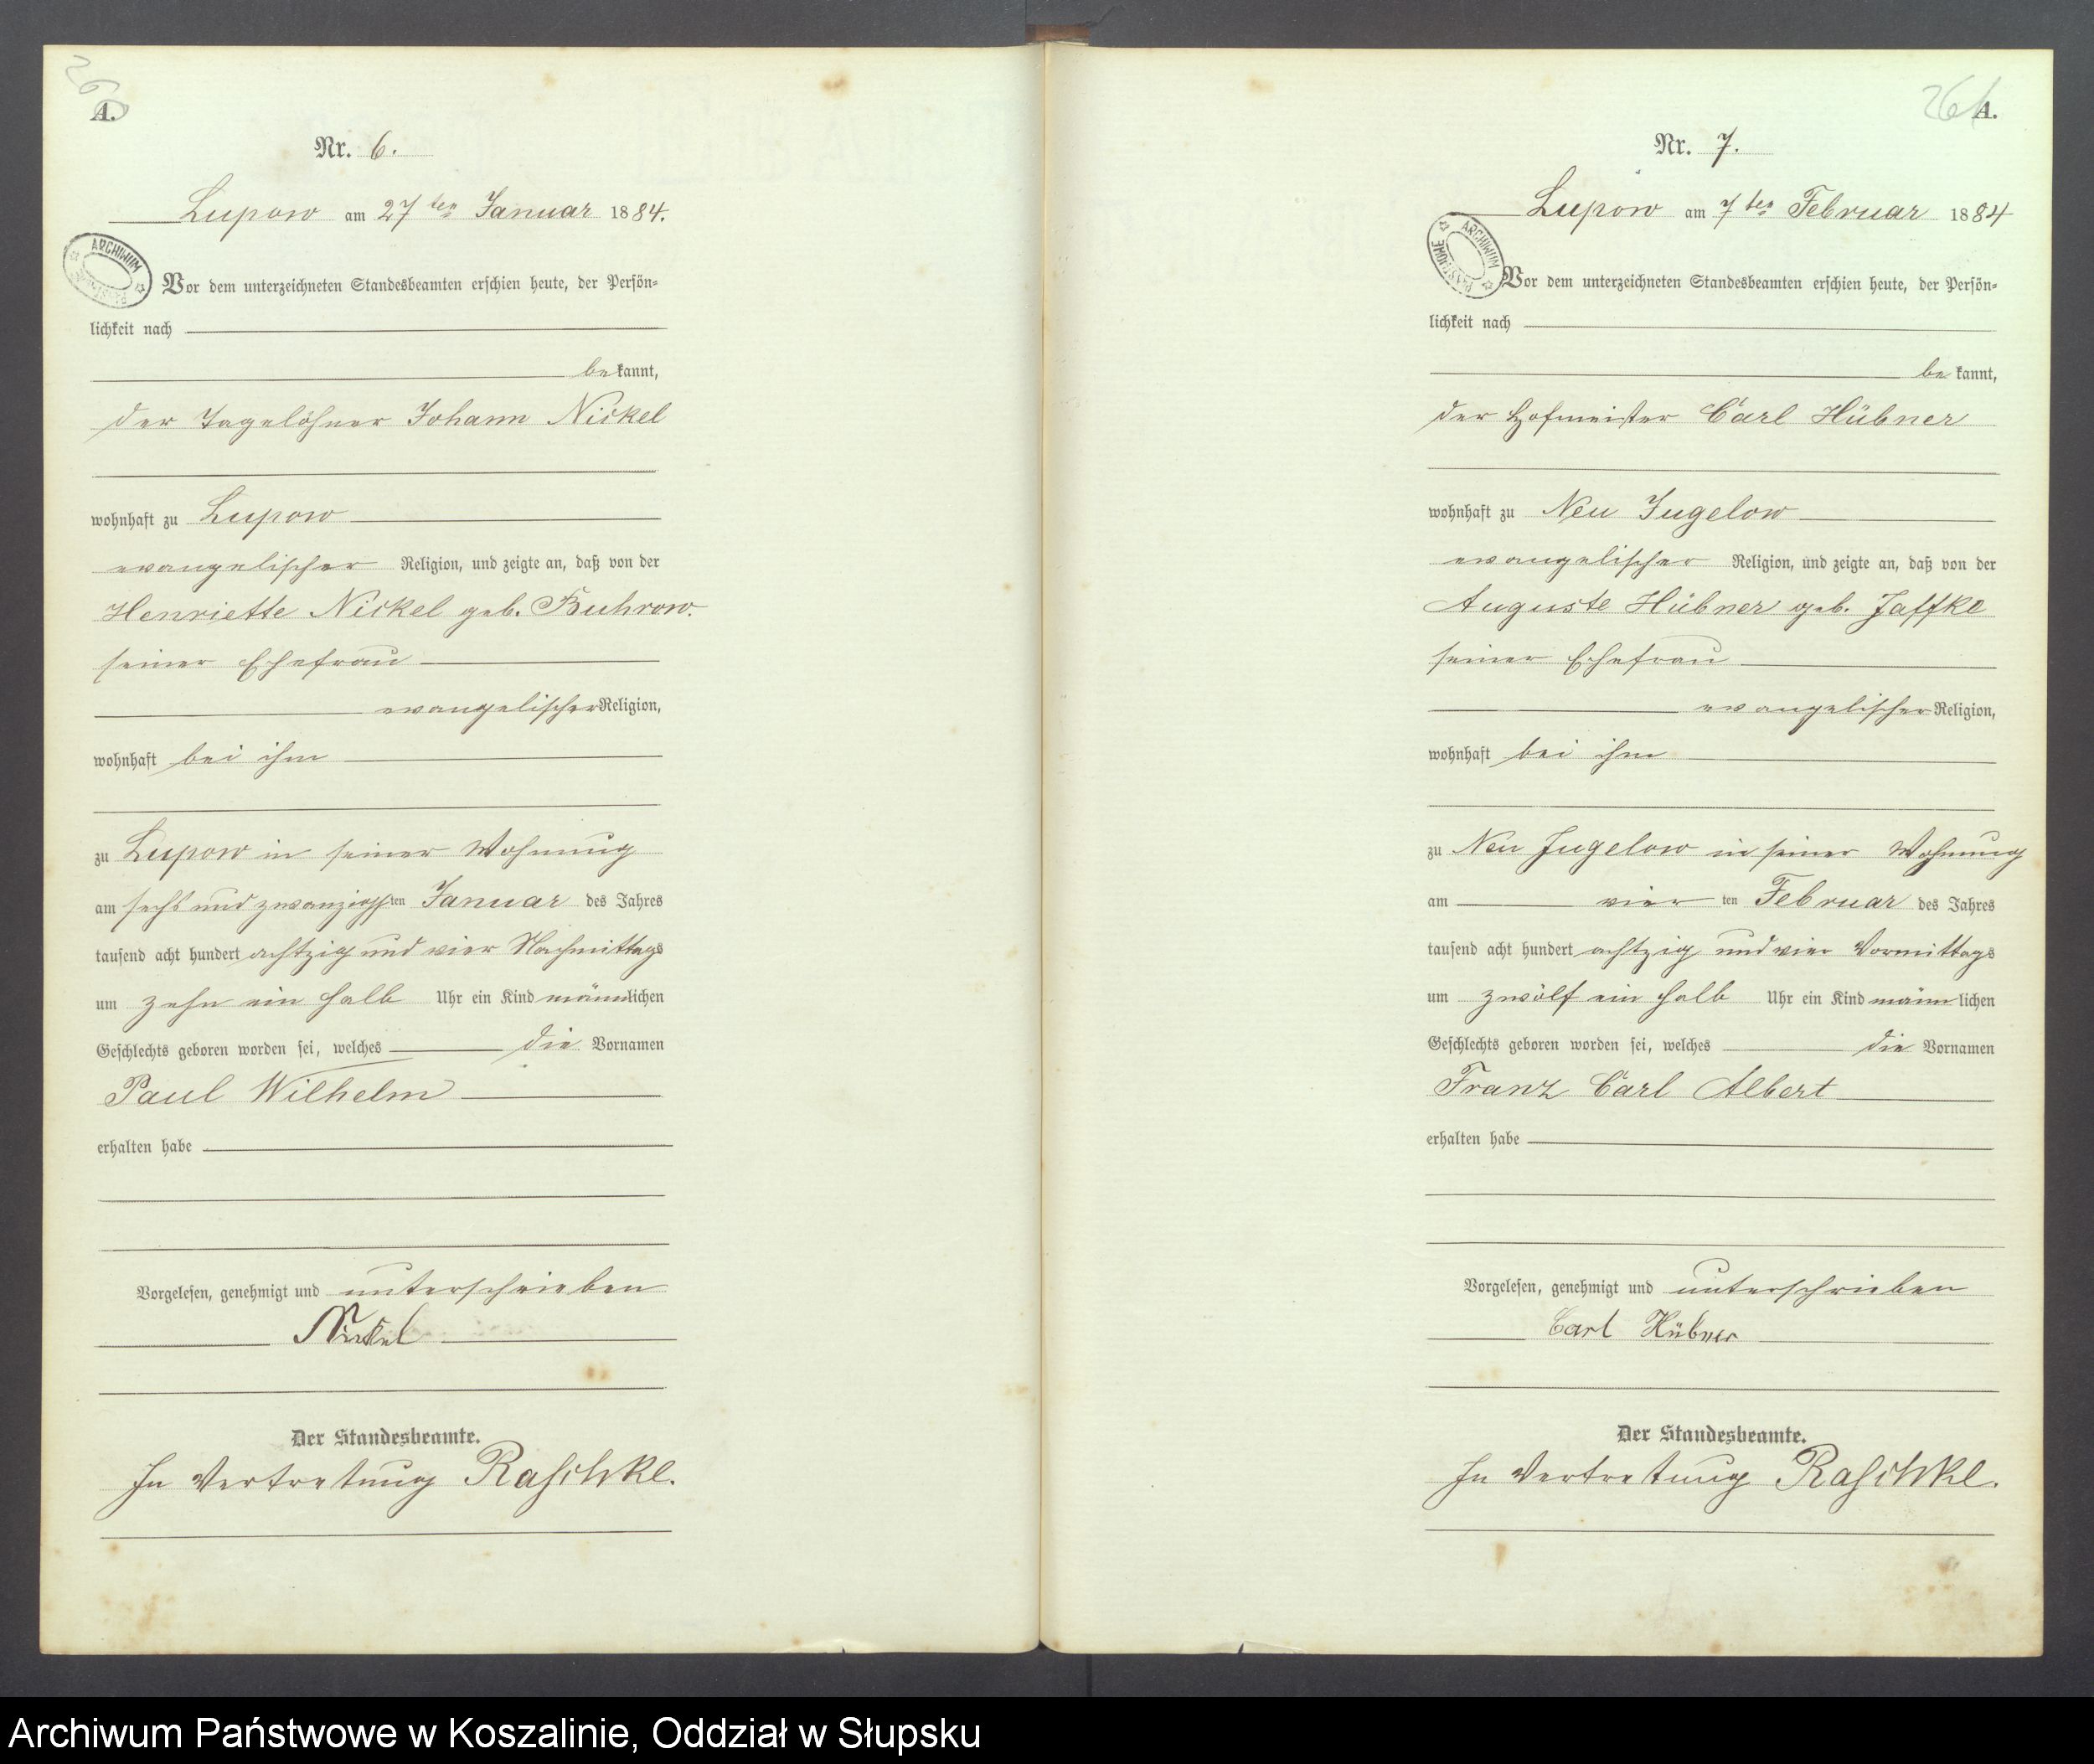 260
A.
Nr. 6.
Lupow am 27ten Januar 1884.
ARCHIWUM
Vor dem unterzeichneten Standesbeamten erschien heute, der Persön=
lichkeit nach
bekannt,
der Tagelöhner Johann Nickel
wohnhaft zu Lupow
evangelischer Religion, und zeigte an, daß von der
Henriette Nickel geb. Buhrow.
seiner Ehefrau
evangelischer Religion,
wohnhaft bei ihm
zu Lupow in seiner Wohnung
am sechs und zwanzigsten Januar des Jahres
tausend acht hundert achtzig und vier Nachmittags
um zehn ein halb Uhr ein Kind männlichen
Geschlechts geboren worden sei, welches die Vornamen
Paul Wilhelm
erhalten habe
Vorgelesen, genehmigt und unterschrieben
Nickel
Der Standesbeamte.
In Vertretung Raschke.
261
A.
Nr. 7.
Lupow am 7ten Februar 1884
ARCHIWUM PAŃSTWOWE
Vor dem unterzeichneten Standesbeamten erschien heute, der Persön=
lichkeit nach
bekannt,
der Hofmeister Carl Hübner
wohnhaft zu Neu Jugelow
evangelischer Religion, und zeigte an, daß von der
Auguste Hübner geb. Jaffke
seiner Ehefrau
evangelischer Religion,
wohnhaft bei ihm
zu Neu Jugelow in seiner Wohnung
am vierten Februar des Jahres
tausend acht hundert achtzig und vier Vormittags
um zwölf ein halb Uhr ein Kind männlichen
Geschlechts geboren worden sei, welches die Vornamen
Franz Carl Albert
erhalten habe
Vorgelesen, genehmigt und unterschrieben
Carl Hübner
Der Standesbeamte.
In Vertretung Raschke.
Archiwum Państwowe w Koszalinie, Oddział w Słupsku